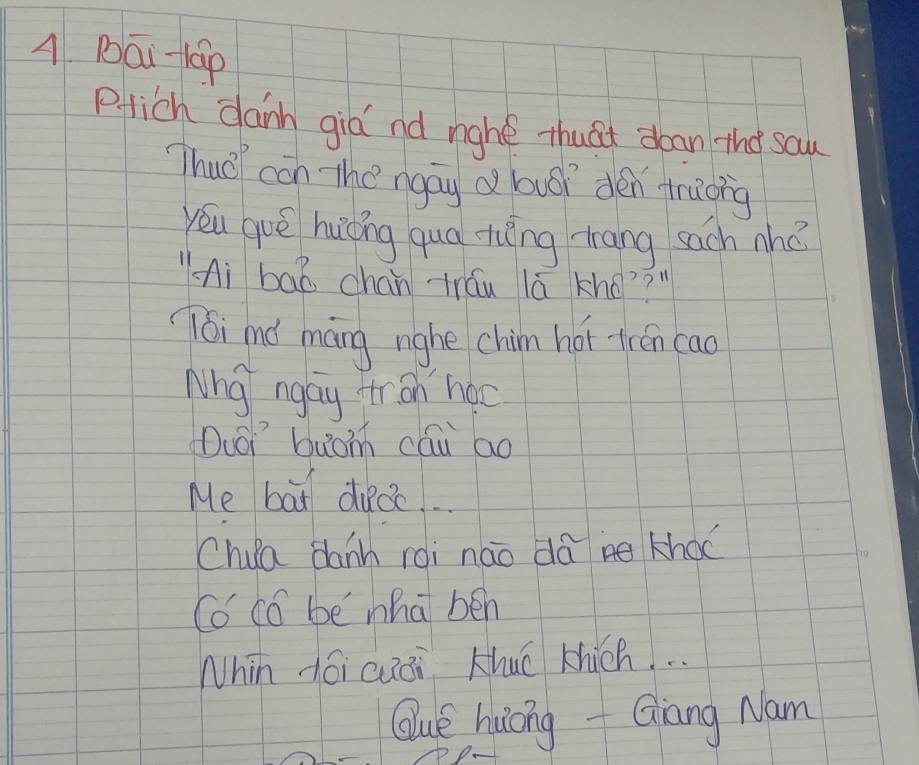 1. Bài tập
Ptích đánh giá nd nghệ thuật đoạn thơ sau
Thuở còn thơ ngày 2 buổi đến trường
Yêu quê hương qua từng trang sách nhỏ
"Ai bảo chăn trâu là khổ??"
Tôi mơ màng nghe chim hót trên cao
Nhg~ ngày trốn học
Đuổi bướm cầu ao
Mẹ bắt được...
Chưa đánh roi nào đã khóc
Có cô bé nhà bên
Nhìn tôi cười khúc khích...
Quê hương - Giang Nam